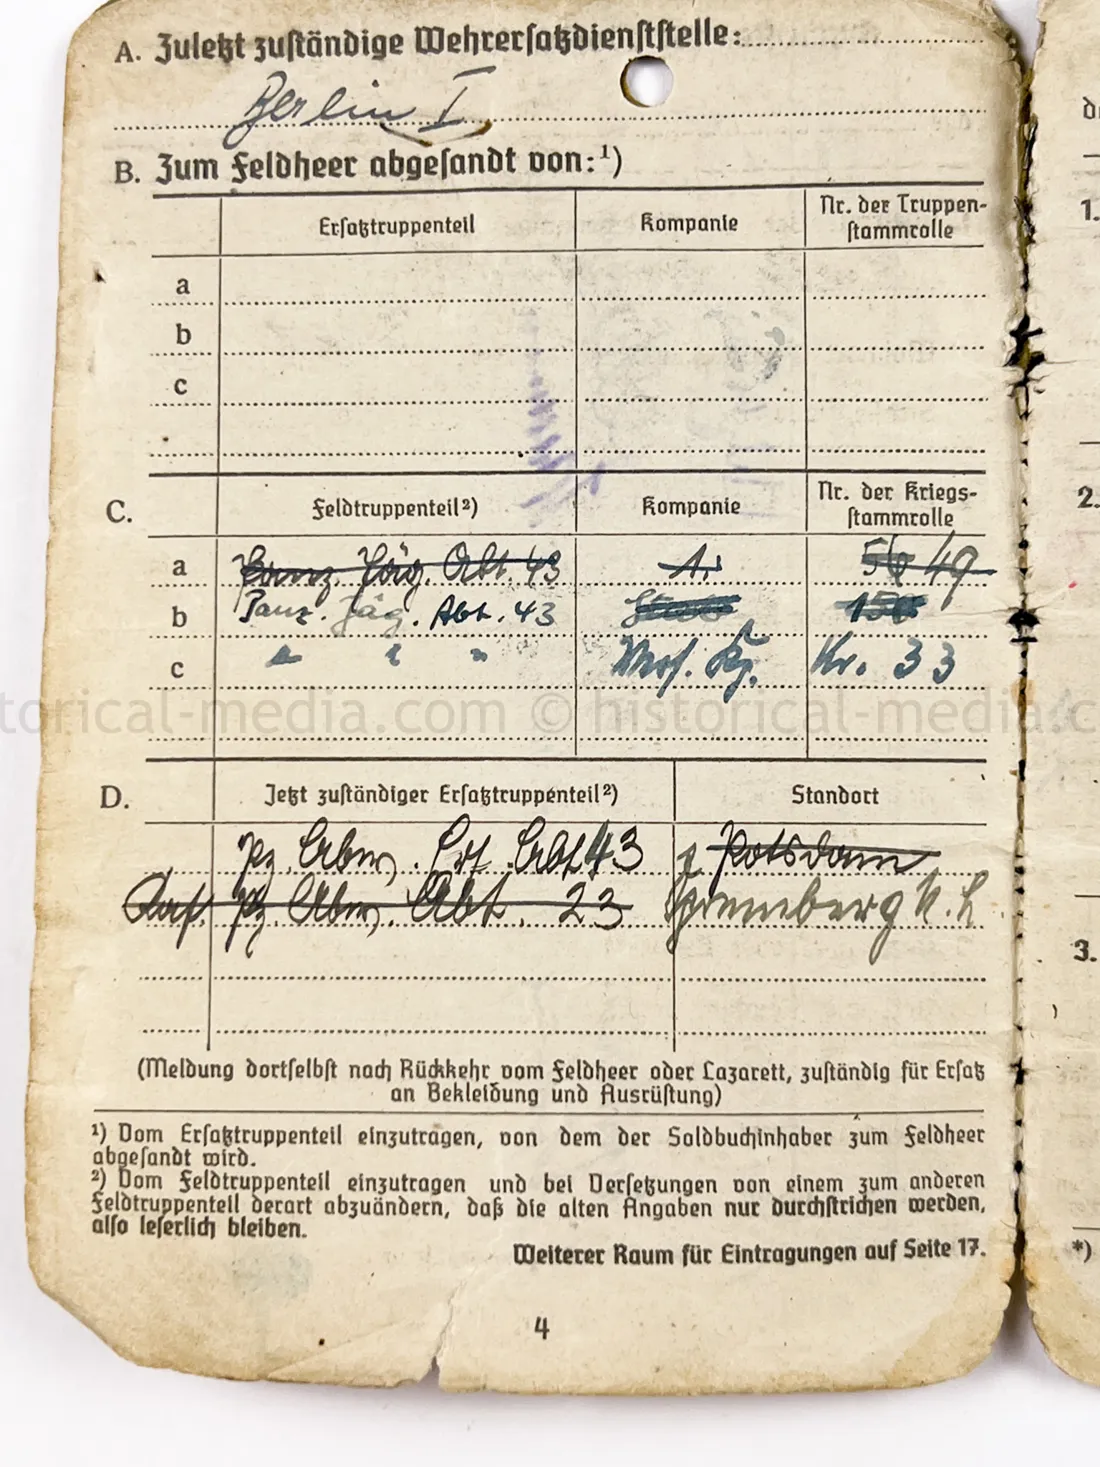 A. Zuletzt zuständige Wehrersatzdienststelle:
Berlin I
B. Zum Feldheer abgesandt von:¹)
Ersatztruppenteil Kompanie Nr. der Truppen-
stammrolle
a
b
c
C. Feldtruppenteil²) Kompanie Nr. der Kriegs-
stammrolle
a Panz. Jäg. Abt. 43 1. 56 49
b Panz. Jäg. Abt. 43 Stab 150
c " " " Kp. Nr. 33
torical-media.com © historical-media.c
D. Jetzt zuständiger Ersatztruppenteil²) Standort
Pz. Abw. Ers. Abt 43 Potsdam
Pz. Abw. Abt. 23 Spremberg N. L
(Meldung dortselbst nach Rückkehr vom Feldheer oder Lazarett, zuständig für Ersatz
an Bekleidung und Ausrüstung)
¹) Vom Ersatztruppenteil einzutragen, von dem der Soldbuchinhaber zum Feldheer
abgesandt wird.
²) Vom Feldtruppenteil einzutragen und bei Versetzungen von einem zum anderen
Feldtruppenteil derart abzuändern, daß die alten Angaben nur durchstrichen werden,
also leserlich bleiben.
Weiterer Raum für Eintragungen auf Seite 17.
4
1.
2.
3.
*)